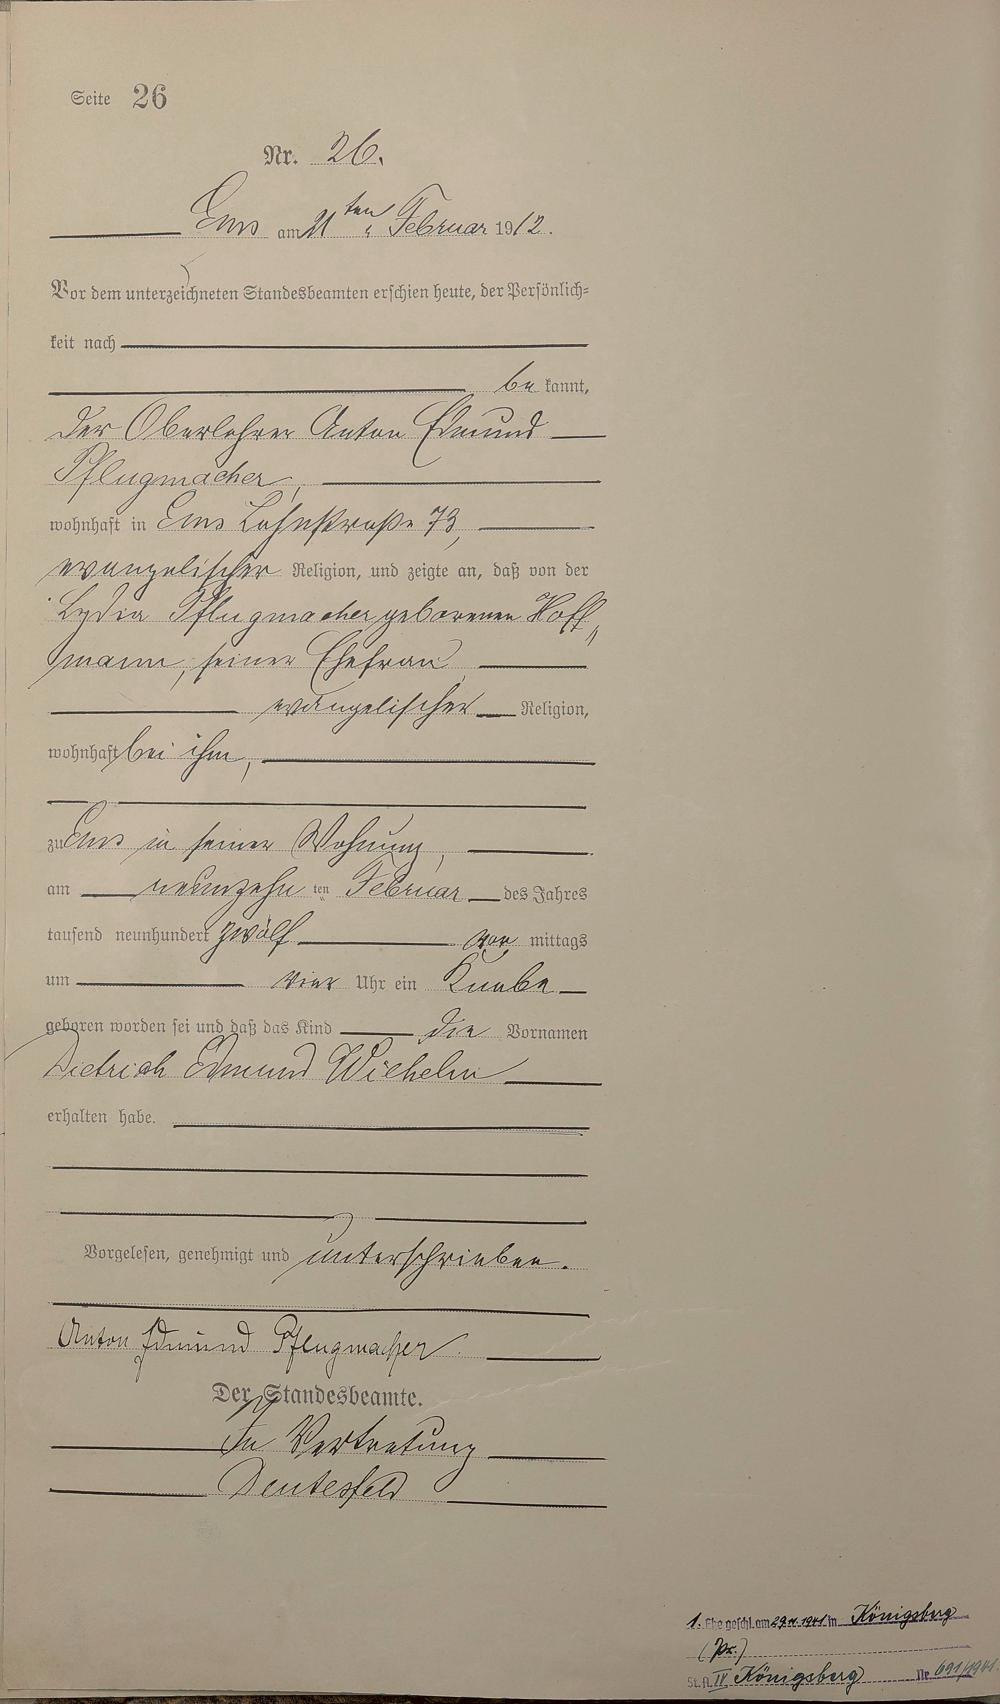 Seite 26
Nr. 26.
Ems am 21ten Februar 1912.
Vor dem unterzeichneten Standesbeamten erschien heute, der Persönlich=
keit nach
be kannt,
der Oberlehrer Anton Edmund
Pflugmacher,
wohnhaft in Ems Lahnstraße 73,
evangelischer Religion, und zeigte an, daß von der
Lydia Pflugmacher geborenen Hoff„
mann, seiner Ehefrau
evangelischer Religion,
wohnhaft bei ihm,
zu Ems in seiner Wohnung,
am neunzehn ten Februar des Jahres
tausend neunhundert zwölf vor mittags
um vier Uhr ein Knabe
geboren worden sei und daß das Kind die Vornamen
Dietrich Edmund Wilhelm
erhalten habe.
Vorgelesen, genehmigt und unterschrieben.
Anton Edmund Pflugmacher.
Der Standesbeamte.
In Vertretung
1. Ehe geschl. am 1941 in Königsberg
(Pr.)
St. A. IV Königsberg Nr. 691/1941